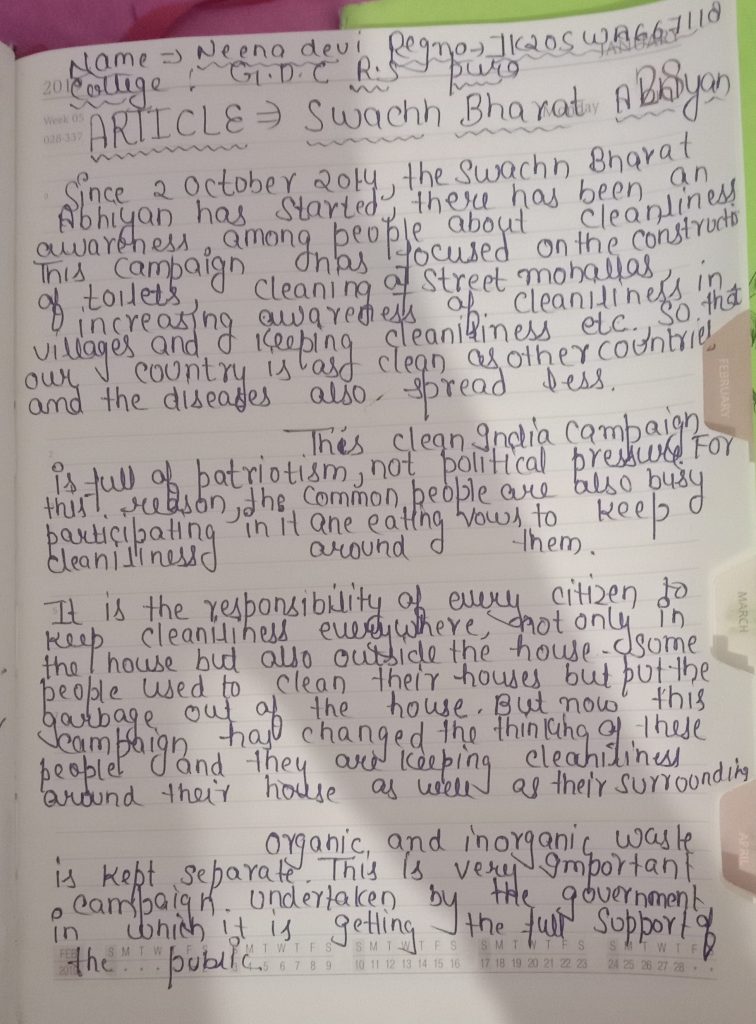 Name => Neena devi Regno-> JK20SWA667118
JANUARY
201
College : G.D.C R.S pura
Week 05
028-337
ARTICLE => Swachh Bharat Abhiyan
Since 2 October 2014, the Swachh Bharat
Abhiyan has started, there has been an
awareness among people about cleanliness
This campaign has focused on the constructo
of toilets, cleaning of street mohallas,
increasing awareness of cleaniliness in
villages and keeping cleaniliness etc. So that
our country is as clean as other countries
and the diseases also spread less.
This clean India campaign
is full of patriotism, not political pressure. For
this reason, the common people are also busy
participating in it ane eating vows to keep
cleaniliness around them.
It is the responsibility of every citizen to
keep cleaniliness everywhere, not only in
the house but also outside the house. Some
people used to clean their houses but put the
garbage out of the house. But now this
campaign has changed the thinking of these
people and they are keeping cleaniliness
around their house as well as their surroonding
organic, and inorganic waste
is kept separate. This is very important
campaign undertaken by the government
in which it is getting the full support of
the public.
FEBRUARY
MARCH
APRIL
S M T W T F S S M T W T F S S M T W T F S S M T W T F
4 5 6 7 8 9 10 11 12 13 14 15 16 17 18 19 20 21 22 23 24 25 26 27 28